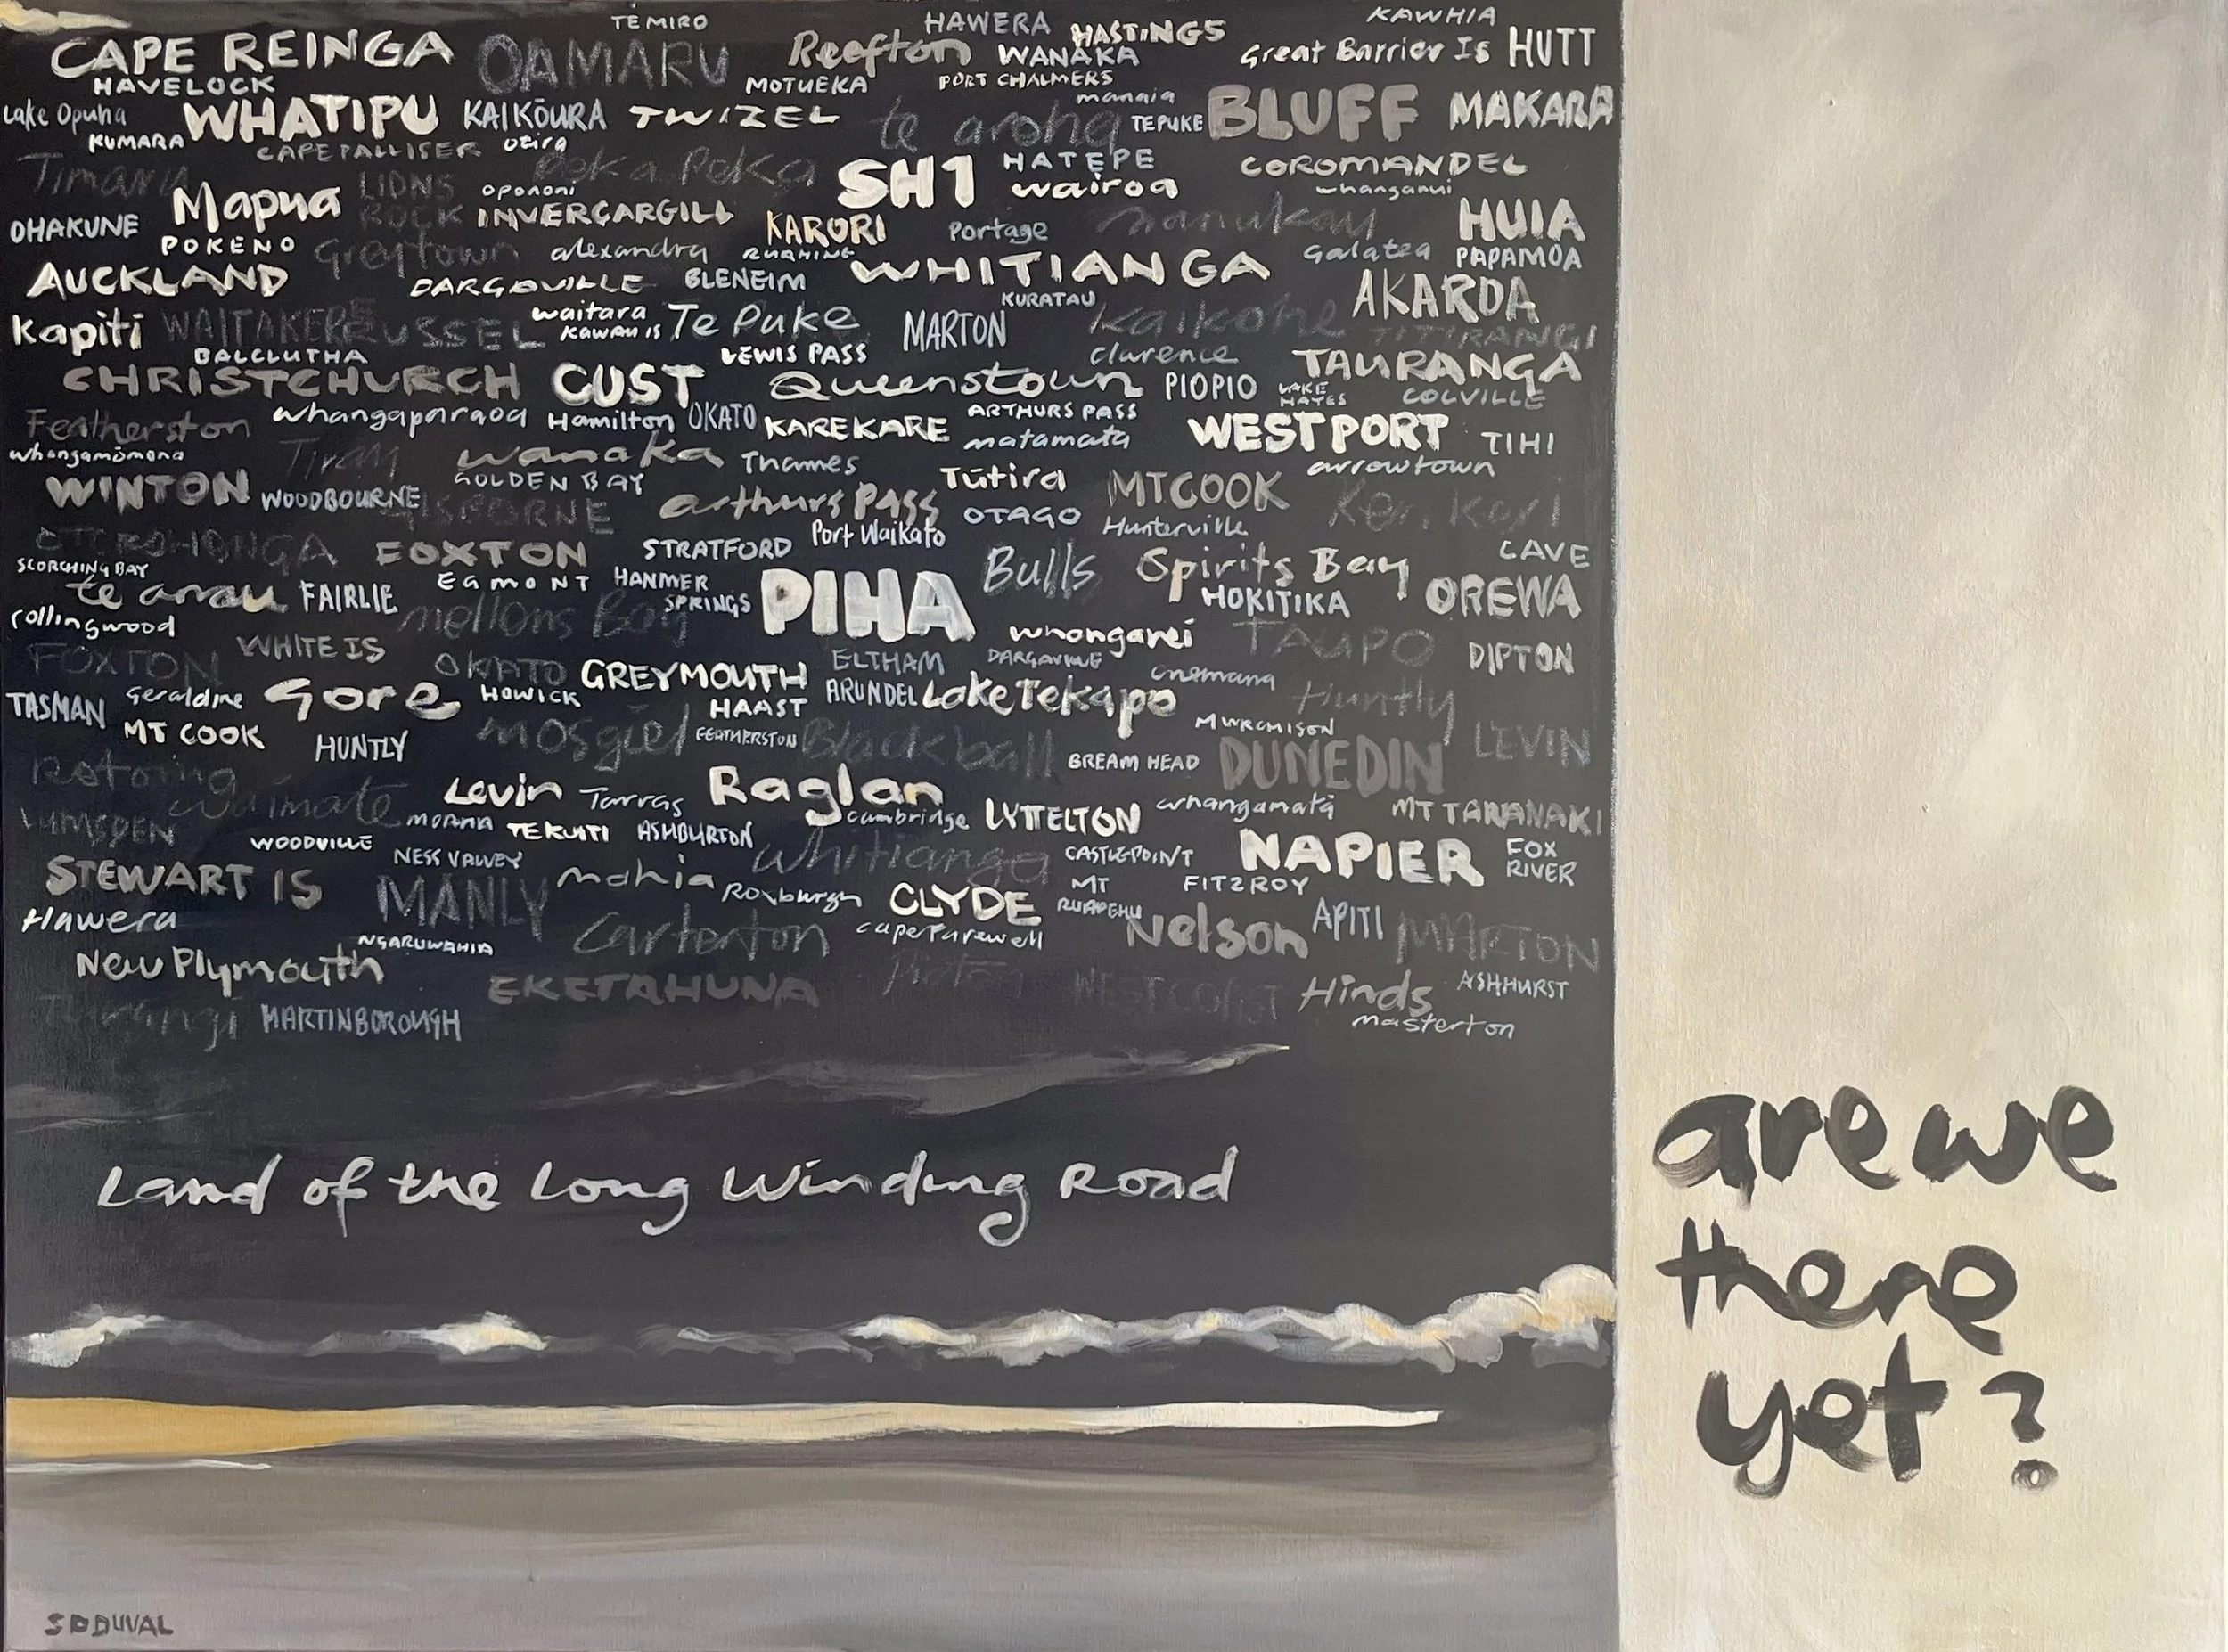 TE MIRO HAWERA HASTINGS KAWHIA
CAPE REINGA OAMARU Reefton WANAKA Great Barrier Is HUTT
HAVELOCK MOTUEKA PORT CHALMERS
Lake Opuha WHATIPU KAIKŌURA TWIZEL te aroha manaia TEPUKE BLUFF MAKARA
KUMARA CAPE PALLISER otira
Timaru Peka Peka SH1 HATEPE COROMANDEL
Mapua LIONS ROCK opononi wairoa whanganui
OHAKUNE INVERCARGILL KARORI Portage manukau HUIA
POKENO Greytown alexandra Galatea PAPAMOA
AUCKLAND DARGAVILLE BLENEIM WHITIANGA
KURATAU AKAROA
Kapiti WAITAKERE RUSSEL waitara KAWAU IS Te Puke MARTON Kaikohe TITIRANGI
BALCLUTHA LEWIS PASS clarence TAURANGA
CHRISTCHURCH CUST Queenstown PIOPIO LAKE HAYES COLVILLE
Featherston whangaparaoa Hamilton OKATO KAREKARE ARTHURS PASS WESTPORT TIHI
whangamōmona Tirau wanaka Thames matamata arrowtown
WINTON WOODBOURNE GOLDEN BAY GISBORNE arthurs Pass Tūtira MTCOOK Keri Keri
OTAGO Hunterville
OTOROHONGA FOXTON STRATFORD Port Waikato CAVE
SCORCHING BAY EGMONT HANMER SPRINGS PIHA Bulls Spirits Bay
te anau FAIRLIE mellons Bay HOKITIKA OREWA
rollingwood WHITE IS whangarei TAUPO DIPTON
FOXTON OKATO GREYMOUTH ELTHAM DARGAVILLE onemana
TASMAN Geraldine Gore HOWICK HAAST ARUNDEL Lake Tekapo Huntly
MT COOK HUNTLY mosgiel FEATHERSTON Blackball MURCHISON LEVIN
BREAM HEAD DUNEDIN
waimate Levin Tarras Raglan cambridge LYTTELTON whangamatā MT TARANAKI
LUMSDEN WOODVILLE MOANA TEKUITI ASHBURTON
NESS VALLEY Whitianga CASTLEPOINT NAPIER FOX RIVER
STEWART IS MANLY mahia Roxburgh CLYDE MT RUAPEHU FITZROY
Hawera Carterton cape Farewell Nelson APITI MARTON
New Plymouth NGARUWAHIA
EKETAHUNA Picton WESTCOAST Hinds ASHHURST
Turangi MARTINBOROUGH masterton
Land of the Long Winding Road
are we
there
yet?
SDDUVAL